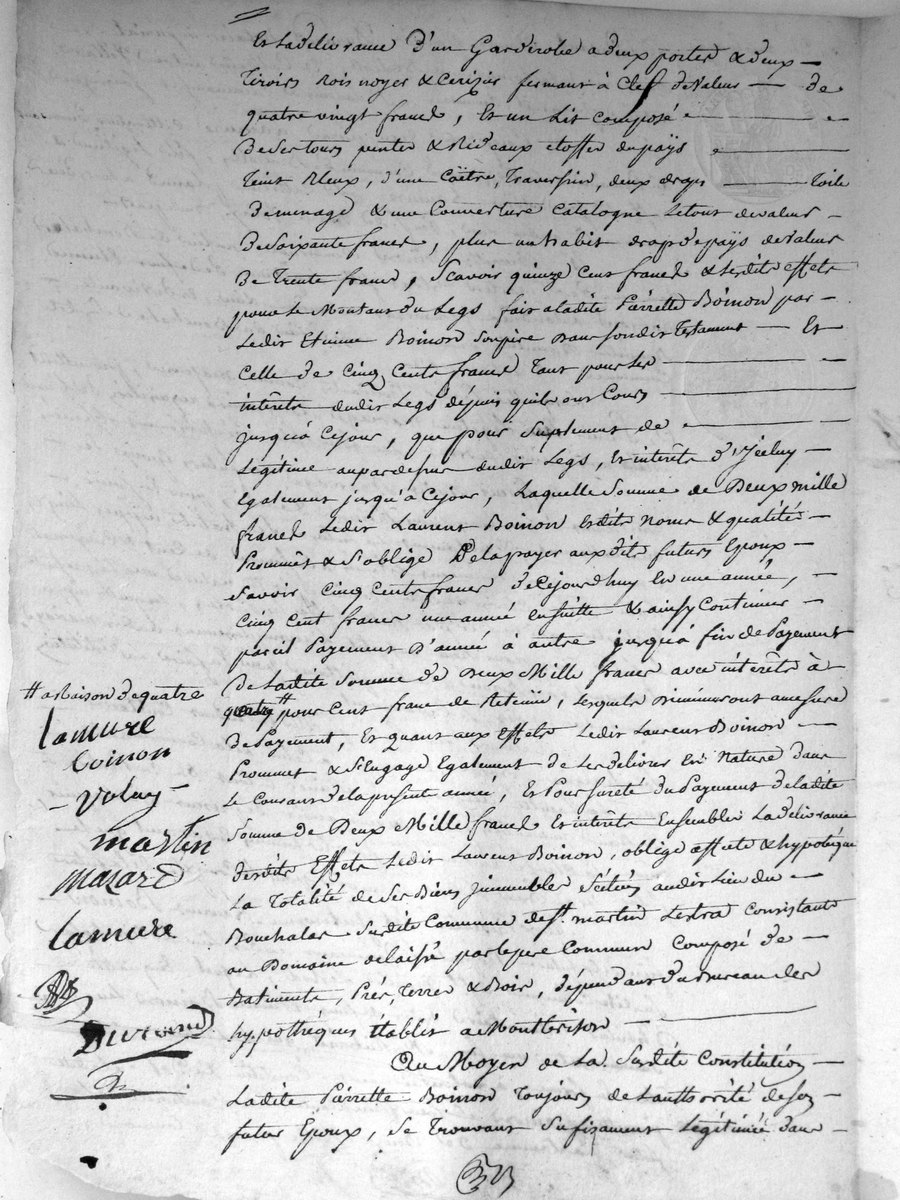 Et la délivrance d'un Garderobe a deux portes & deux
Tiroirs Bois noyer & cerizier fermant à Clef de valeur — de
quatre vingt francs, Et un Lit composé
De ses tours pentes & Rideaux etoffes du païs
Teint Bleux, d'une Coëtre, Traversin, deux draps — Toile
De menage & une Couverture Catalogne Le tout de valeur
De soixante francs, plus un habit drap de païs de valeur
De Trente francs, Scavoir quinze cent francs & lesdits effets
pour le Montant du Legs fait a ladite Pierrette Boinon par
Ledit Etienne Boinon son père dans sondit Testament — Et
Celle de Cinq Cents francs Tant pour les
intérêts dudit Legs depuis qu'ils ont Cours
jusqu'à Cejour, que pour Suplement de
Légitime aupardessus dudit Legs, Et intérêts d'Yceluy
Egalement jusqu'à Cejour, Laquelle Somme de Deux mille
francs Ledit Laurent Boinon Esdits noms & qualités
Prommet & S'oblige De la payer auxdits futurs Epoux
Savoir Cinq Cents francs de Cejourdhuy En une année,
Cinq Cent francs une année ensuitte & ainsy Continuer
pareil Payement D'année à autre jusqu'à fin de Payement
De Ladite Somme de Deux Mille francs avec intérêts à
# pour Cent franc de Retenüe, Lesquels Diminueront amesure
De Payement, Et quant aux Effets Ledit Laurent Boinon
Prommet & S'Engage Egalement de Les délivrer En Nature dans
Le Courant de la presente année, Et Pour Sureté du Payement de ladite
Somme de Deux Mille francs Et intérêts Ensembles La délivrance
desdits Effets Ledit Laurent Boinon, oblige affecte & hypotèque
La Totalité de Ses Biens jmmeubles Scitués audit Lieu du
Bouchalas Susdite Commune de St. martin Lestra Consistants
au Domaine délaissé par le pere Commun Composé de
Batiments, Prés, Terres & Bois, dépendant du Bureau des
hypothèques établit a Montbrison
Au Moyen de La Susdite Constitution
Ladite Pierrette Boinon Toujours de L'authorité de son
futur Epoux, Se Trouvant Sufizament Légitimée dans
# a Raison de quatre
Lamure
Boinon
Volay
martin
mazard
Lamure
Durand